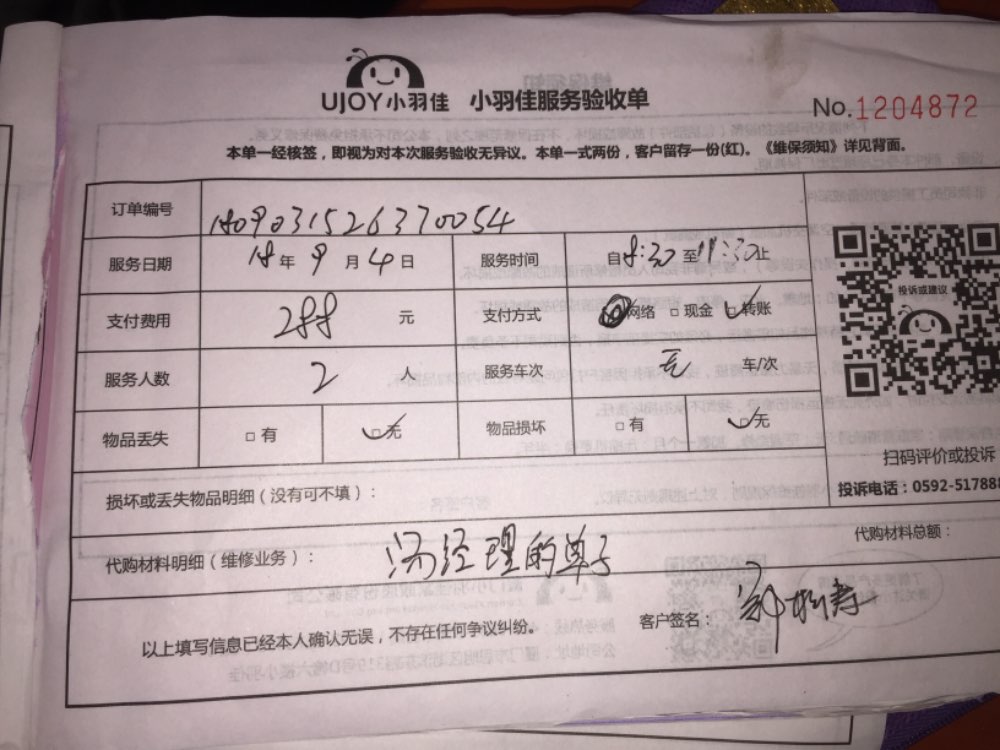 UJOY小羽佳 小羽佳服务验收单
No.1204872
本单一经核签，即视为对本次服务验收无异议。本单一式两份，客户留存一份(红)。《维保须知》详见背面。
订单编号 180903152637 0054
服务日期 18 年 9 月 4 日 服务时间 自8:30至11:30止
支付费用 288 元 支付方式 网络 □ 现金 ☑ 转账
投诉或建议
服务人数 2 人 服务车次 无 车/次
物品丢失 □ 有 ☑ 无 物品损坏 □ 有 ☑ 无
扫码评价或投诉
损坏或丢失物品明细（没有可不填）：
投诉电话：0592-517888
代购材料明细（维修业务）： 汤经理的单子 代购材料总额：
以上填写信息已经本人确认无误，不存在任何争议纠纷。 客户签名：